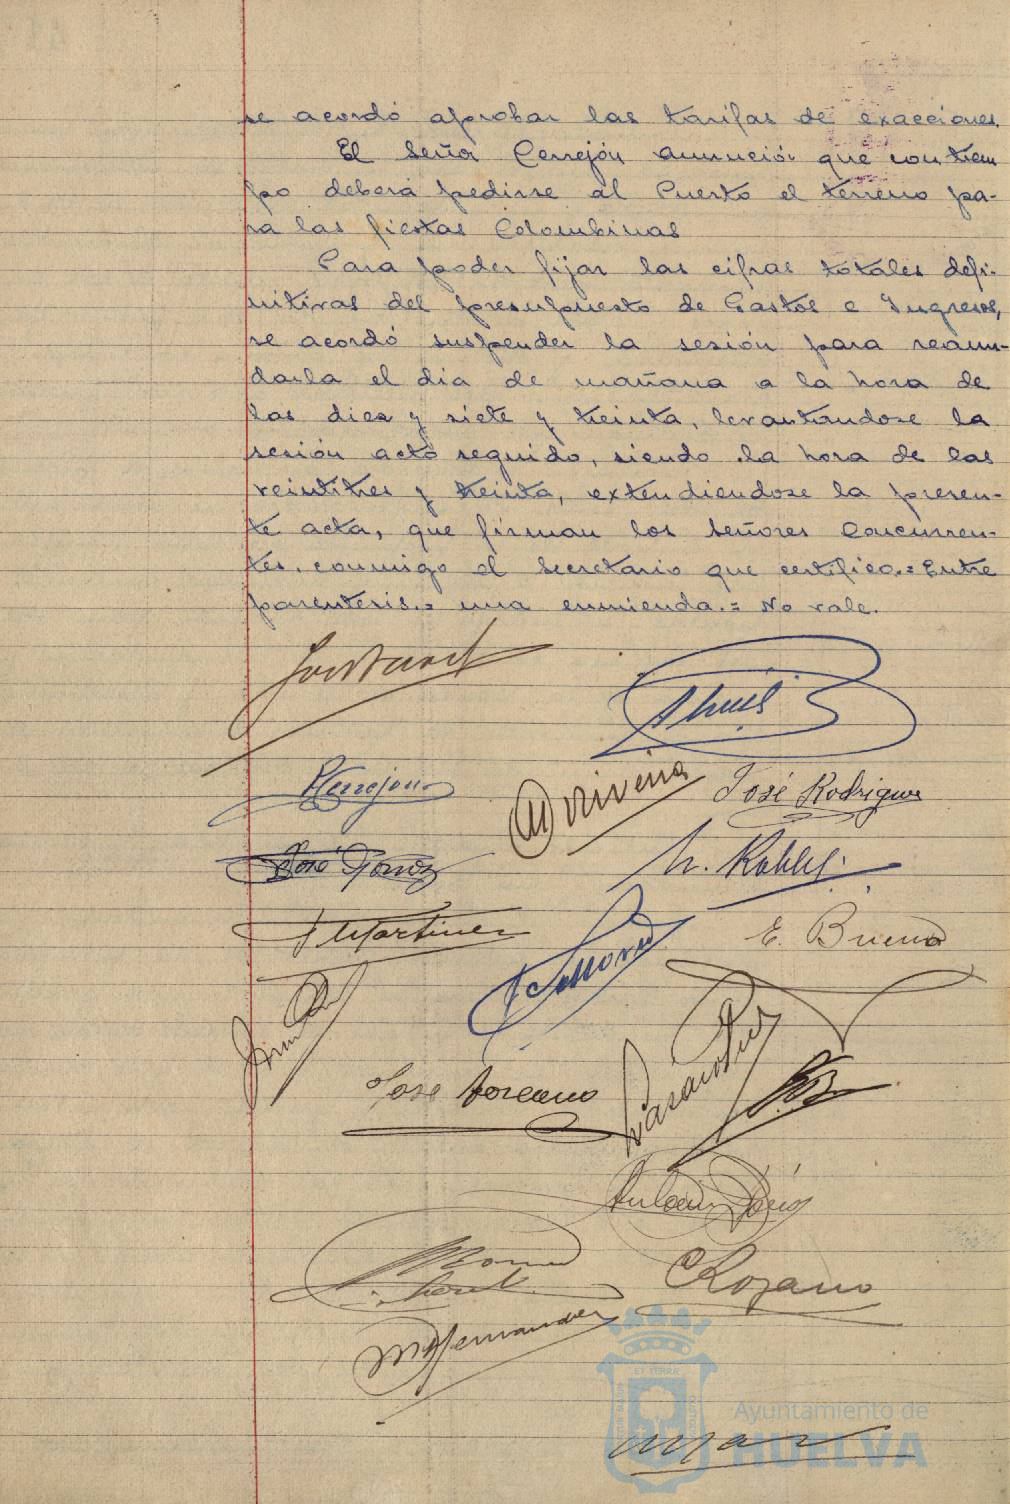 se acordó aprobar las tarifas de exacciones.
El Señor Cerrejón anunció que con tiem
po deberá pedirse al Puerto el terreno pa-
ra las fiestas Colombinas
Para poder fijar las cifras totales defi-
nitivas del presupuesto de Gastos e Ingresos,
se acordó suspender la sesión para reanu-
darla el dia de mañana a la hora de
las diez y siete y treinta, levantandose la
sesión acto seguido, siendo la hora de las
veintitres y treinta, extendiendose la presen-
te acta, que firman los Señores Concurren-
tes, conmigo el Secretario que certifico.= Entre
parentesis.= una enmienda.= No vale.
Cerrejon
Rivera
José Rodriguez
José Ponce
Martinez
E. Bueno
José Soreano
Rozano
M Hernandez
ET TERRIS
Ayuntamiento de
HUELVA